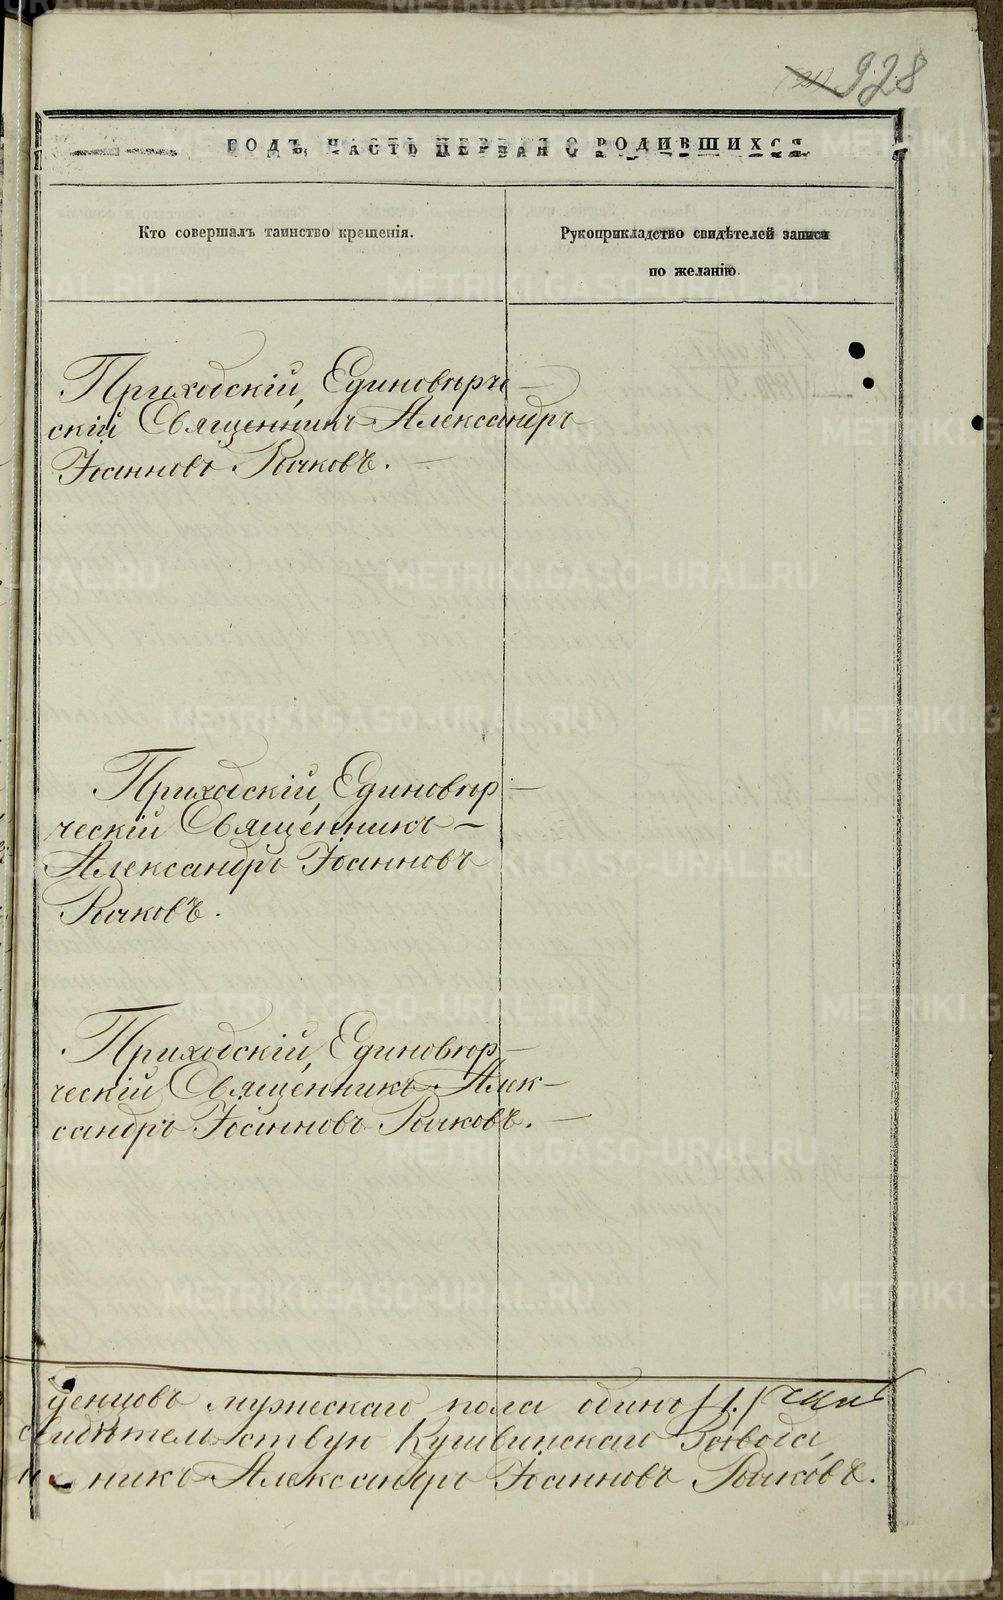 928
ГОДЪ ЧАСТЬ ПЕРВАЯ О РОДИВШИХСЯ
Кто совершалъ таинство крещенія.
Рукоприкладство свидѣтелей записи
по желанію.
Приходскій, Единовѣрче-
скій Священникъ Александръ
Іоанновъ Рычковъ. —
Приходскій, Единовѣр-
ческій Священникъ —
Александръ Іоанновъ
Рычковъ.
Приходскій, Единовѣр-
ческій Священникъ Алек-
сандръ Іоанновъ Рычковъ. —
денцовъ мужескаго пола одинъ /1./
свидѣтельствую Кушвинскаго Завода,
никъ Александръ Іоанновъ Рычковъ.
METRIKI.GASO-URAL.RU